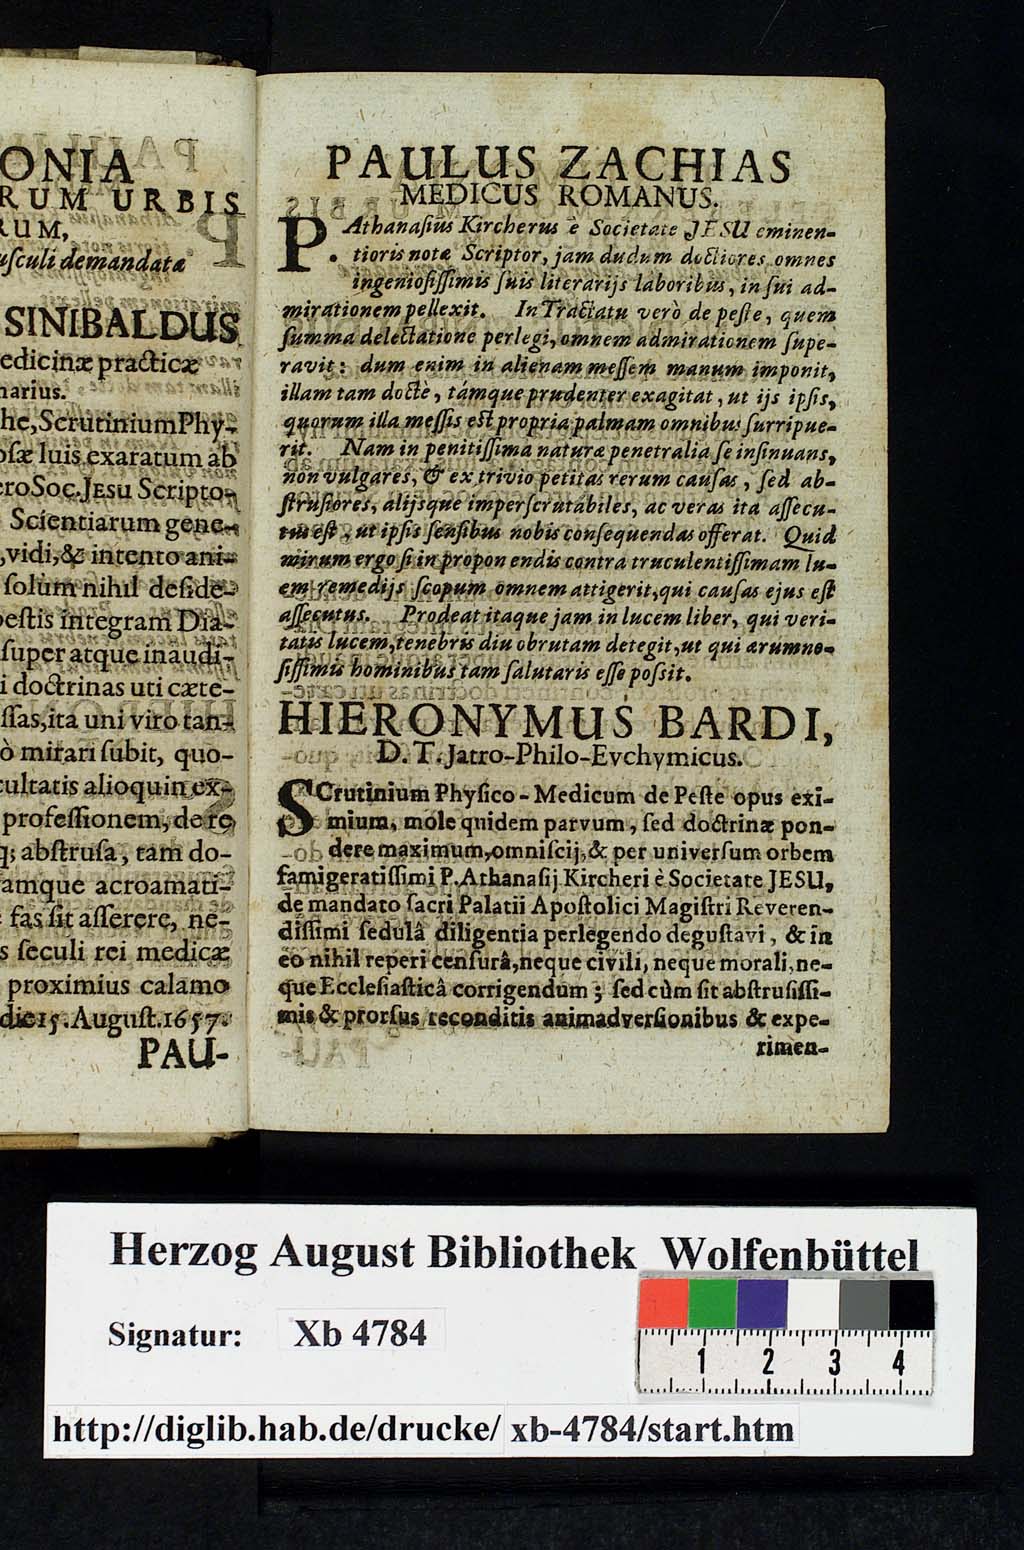 ONIA
RUM URBIS
RUM,
uſculi demandatæ
SINIBALDUS
edicinæ practicæ
narius.
he, Scrutinium Phy-
oſæ luis exaratum ab
ero Soc. JEsu Scripto-
Scientiarum gene-
, vidi, & intento ani-
ſolùm nihil deſide-
peſtis integram Dia-
ſuper atque inaudi-
i doctrinas uti cæte-
ſſas, ita uni viro tan-
ò mirari ſubit, quo-
cultatis alioquin ex-
profeſſionem, de re
q; abſtruſa, tam do-
amque acroamati-
fas ſit aſſerere, ne-
s ſeculi rei medicæ
proximius calamo
die 15. Auguſt. 1657.
PAU-
PAULUS ZACHIAS
MEDICUS ROMANUS.
P. Athanaſius Kircherus è Societate JESU eminen-
tioris notæ Scriptor, jam dudum doctiores omnes
ingenioſiſſimis ſuis literarijs laboribus, in ſui ad-
mirationem pellexit. In Tractatu verò de peſte, quem
ſumma delectatione perlegi, omnem admirationem ſupe-
ravit: dum enim in alienam meſſem manum imponit,
illam tam doctè, támque prudenter exagitat, ut ijs ipſis,
quorum illa meſſis eſt propria palmam omnibus ſurripue-
rit. Nam in penitiſſima naturæ penetralia ſe inſinuans,
non vulgares, & ex trivio petitas rerum cauſas, ſed ab-
ſtruſiores, alijsque imperſcrutabiles, ac veras ita aſſecu-
tus eſt, ut ipſis ſenſibus nobis conſequendas offerat. Quid
mirum ergo ſi in propon endis contra truculentiſſimam lu-
em remedijs ſcopum omnem attigerit, qui cauſas ejus eſt
aſſecutus. Prodeat itaque jam in lucem liber, qui veri-
tatis lucem, tenebris diu obrutam detegit, ut qui ærumno-
ſiſſimis hominibus tam ſalutaris eſſe poſſit.
HIERONYMUS BARDI,
D. T. Jatro-Philo-Evchymicus.
SCrutinium Phyſico-Medicum de Peſte opus exi-
mium, mole quidem parvum, ſed doctrinæ pon-
dere maximum, omniſcij, & per univerſum orbem
famigeratiſſimi P. Athanaſij Kircheri è Societate JESU,
de mandato ſacri Palatii Apoſtolici Magiſtri Reveren-
diſſimi ſedulâ diligentia perlegendo deguſtavi, & in
eo nihil reperi cenſurâ, neque civili, neque morali, ne-
que Eccleſiaſticâ corrigendum; ſed cùm ſit abſtruſiſſi-
mis & prorſus reconditis animadverſionibus & expe-
rimen-
Herzog August Bibliothek Wolfenbüttel
Signatur: Xb 4784
1 2 3 4
http://diglib.hab.de/drucke/ xb-4784/start.htm